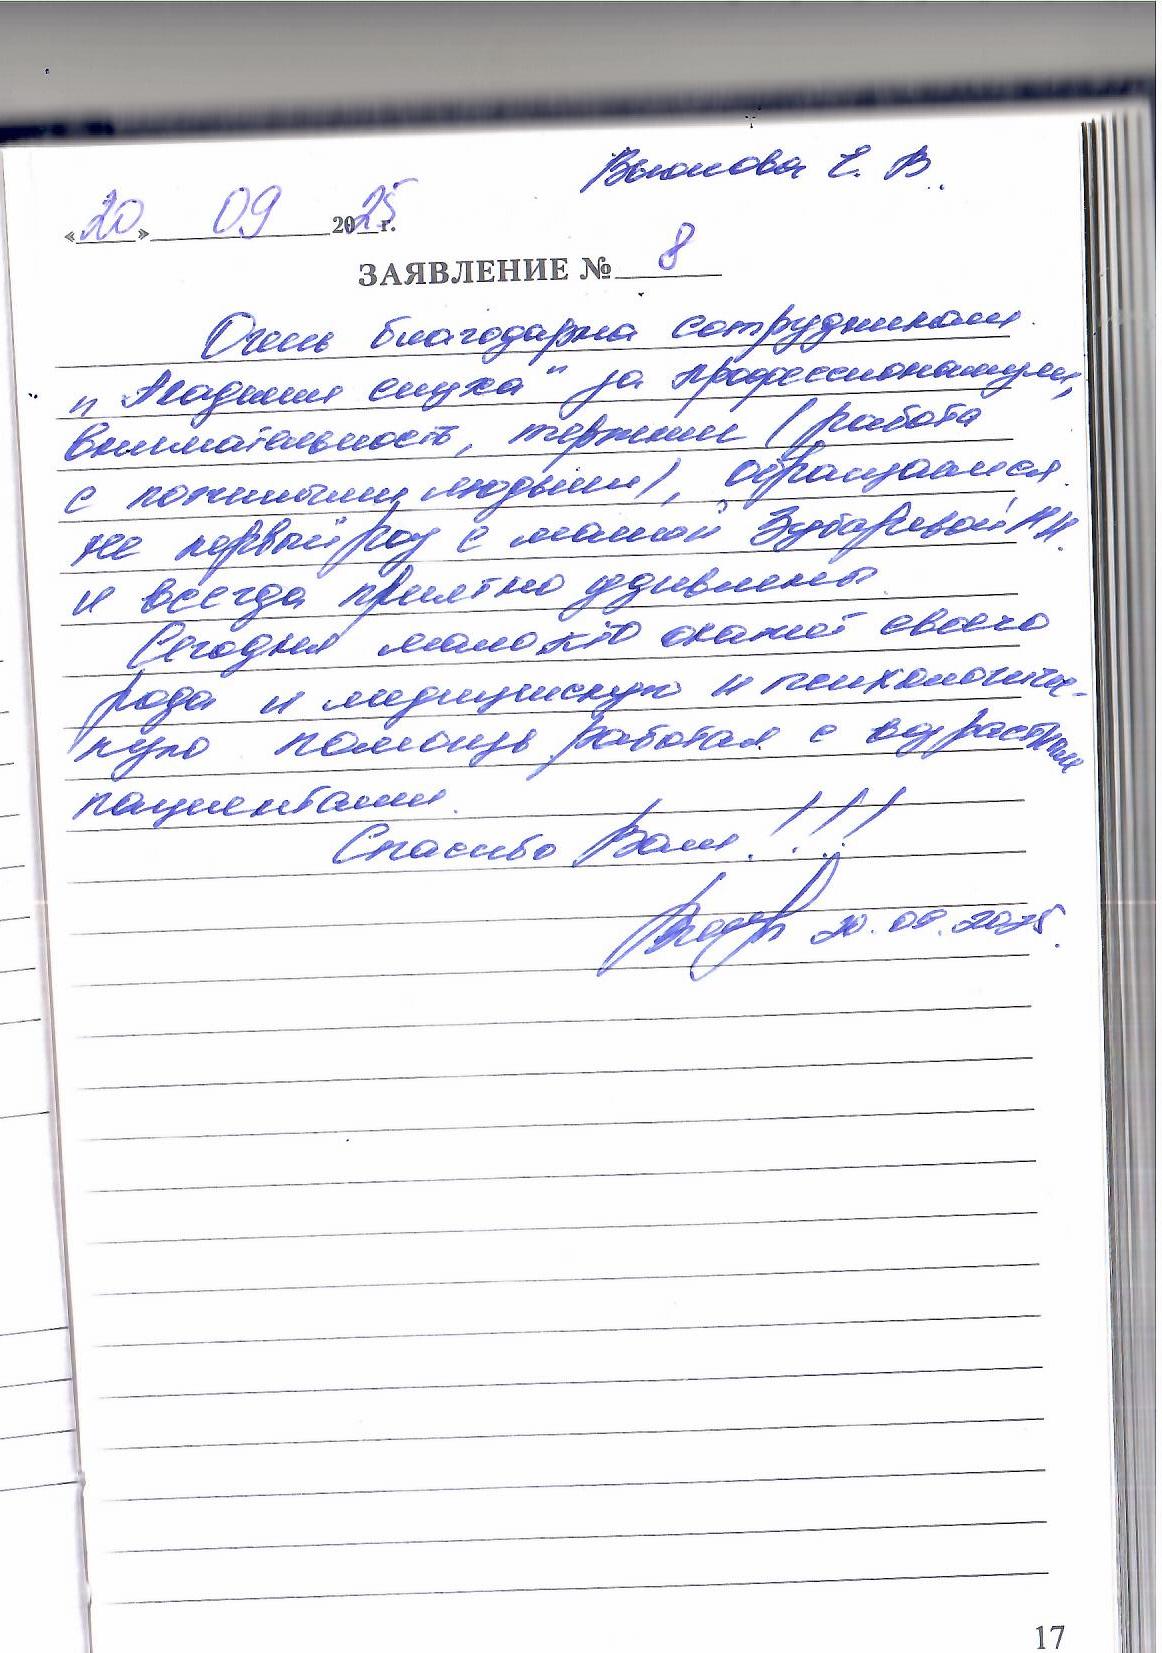 Е. В.
«20» 09 2025 г.
ЗАЯВЛЕНИЕ № 8
Очень благодарна сотрудникам
"Академии слуха" за профессионализм,
внимательность, терпение (работа
с пожилыми людьми), обращаемся
не первый раз с мамой Зубаревой Н.Н.
и всегда приятно удивлены.
Сегодня мало кто окажет своего
рода и медицинскую и психологиче-
скую помощь работая с возрастными
пациентами.
Спасибо Вам!!!
20.09.2025.
17